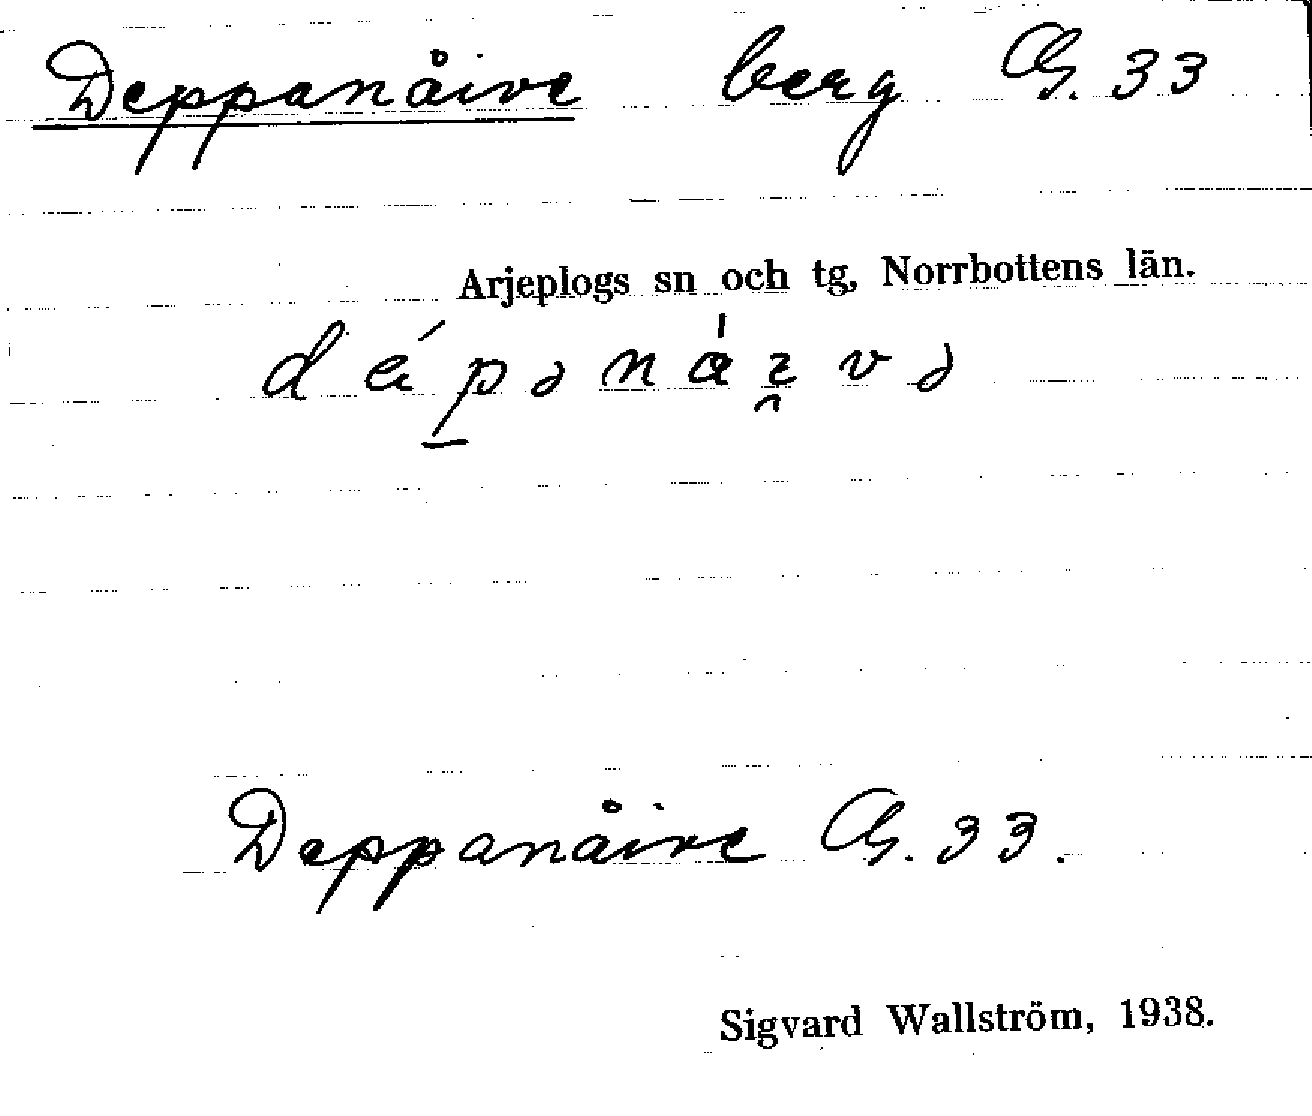 Deppanåive berg G. 33
Arjeplogs sn och tg, Norrbottens län.
Deppanåive G. 33.
Sigvard Wallström, 1938.